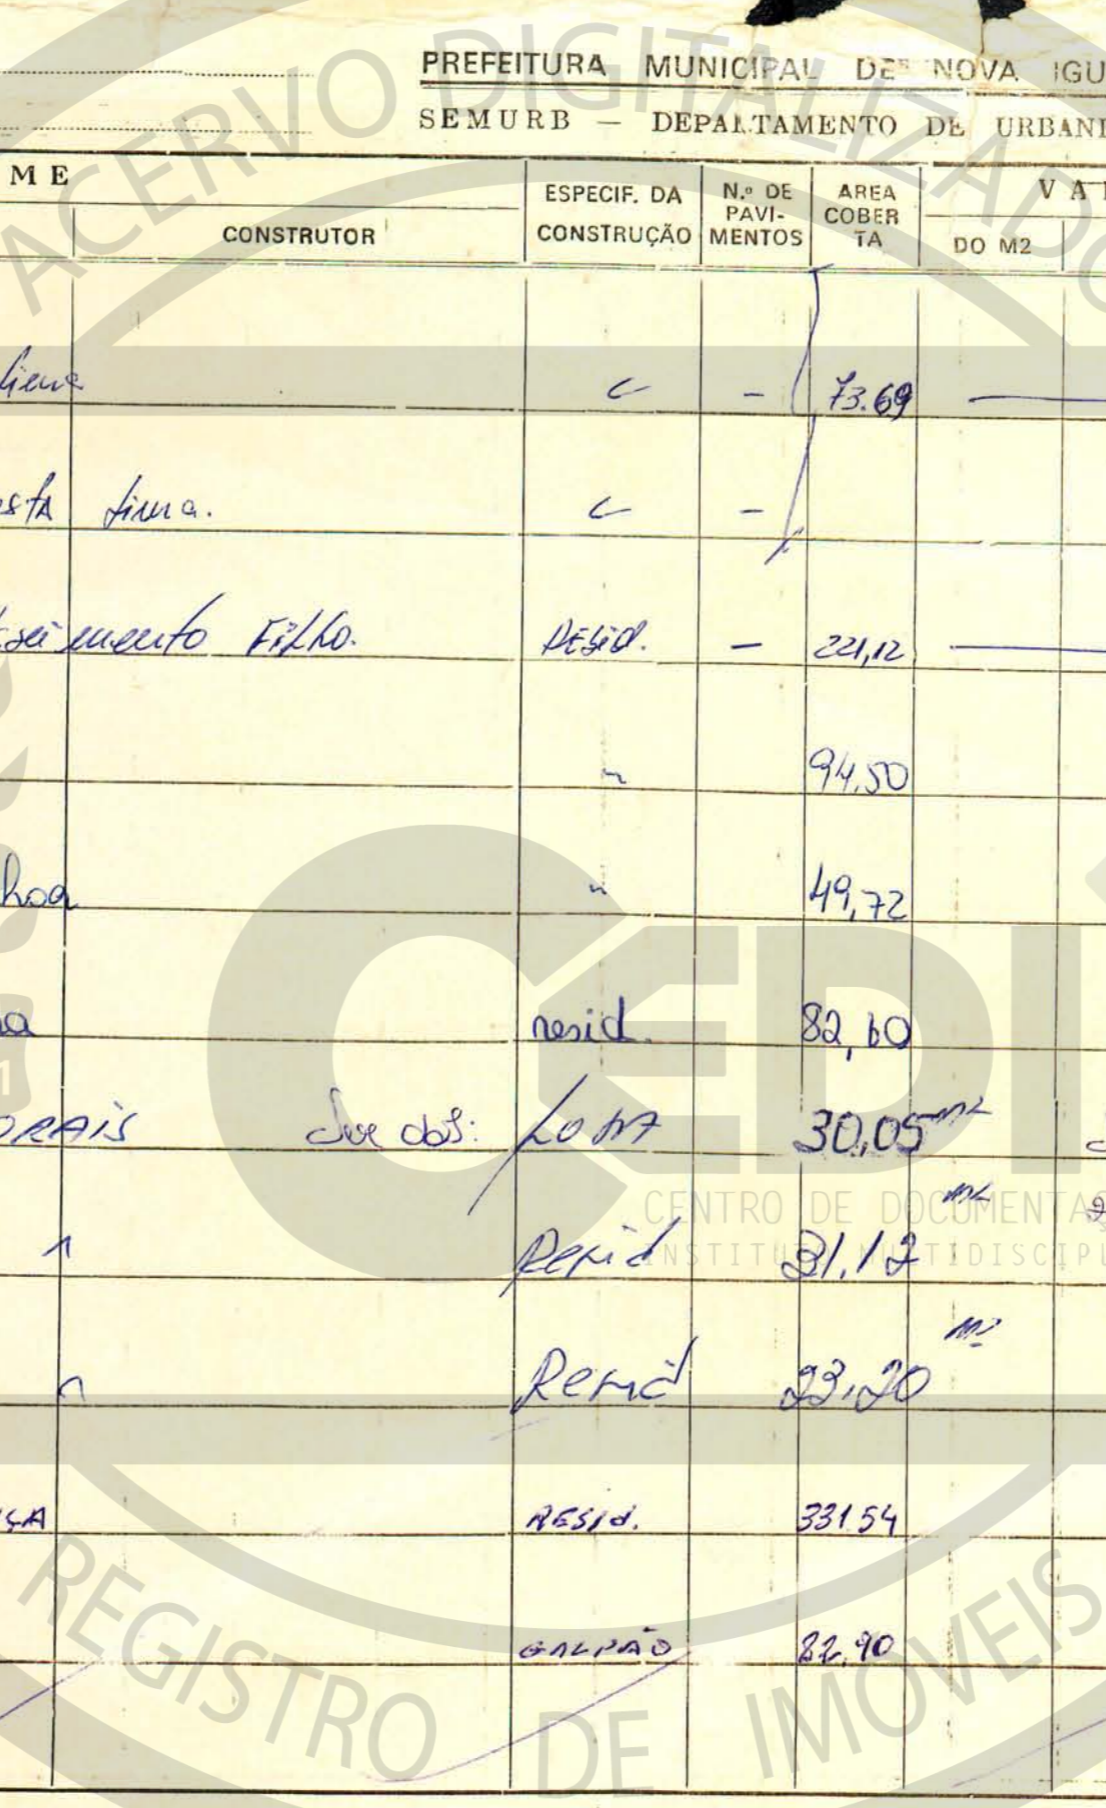 PREFEITURA MUNICIPAL DE NOVA IGU
SEMURB — DEPARTAMENTO DE URBANI
M E
CONSTRUTOR
ESPECIF. DA CONSTRUÇÃO
N.º DE PAVI-MENTOS
AREA COBER TA
V A
DO M2
C - 73.69 —
esta Lima. C -
Filho. Resid. - 221,12 —
" 94,50
hoa " 49,72
na resid. 82,60
ORAIS Loja 30,05 m2
" Resid 31,12 m2
" Resid 23,20 m2
ÇA RESID. 331.54
GALPÃO 82,90
ACERVO DIGITALIZADO
CEDI
CENTRO DE DOCUMENTAÇ
INSTITUTO MULTIDISCIPL
REGISTRO DE IMOVEIS